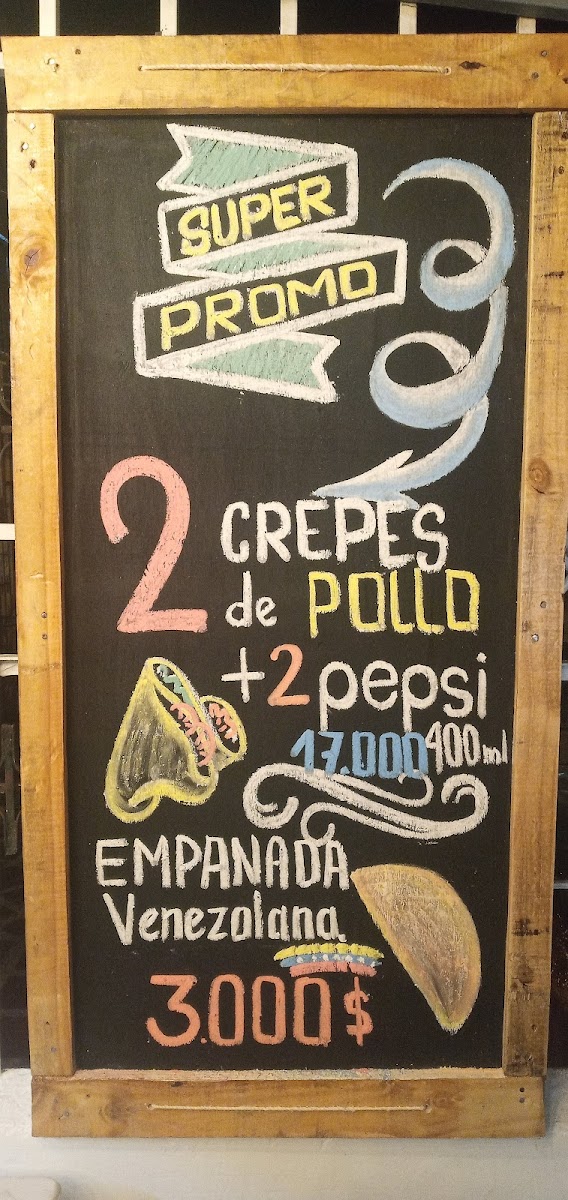 SUPER
PROMO
2 CREPES
de POLLO
+2 pepsi
17.000 400ml
EMPANADA
Venezolana
3.000$